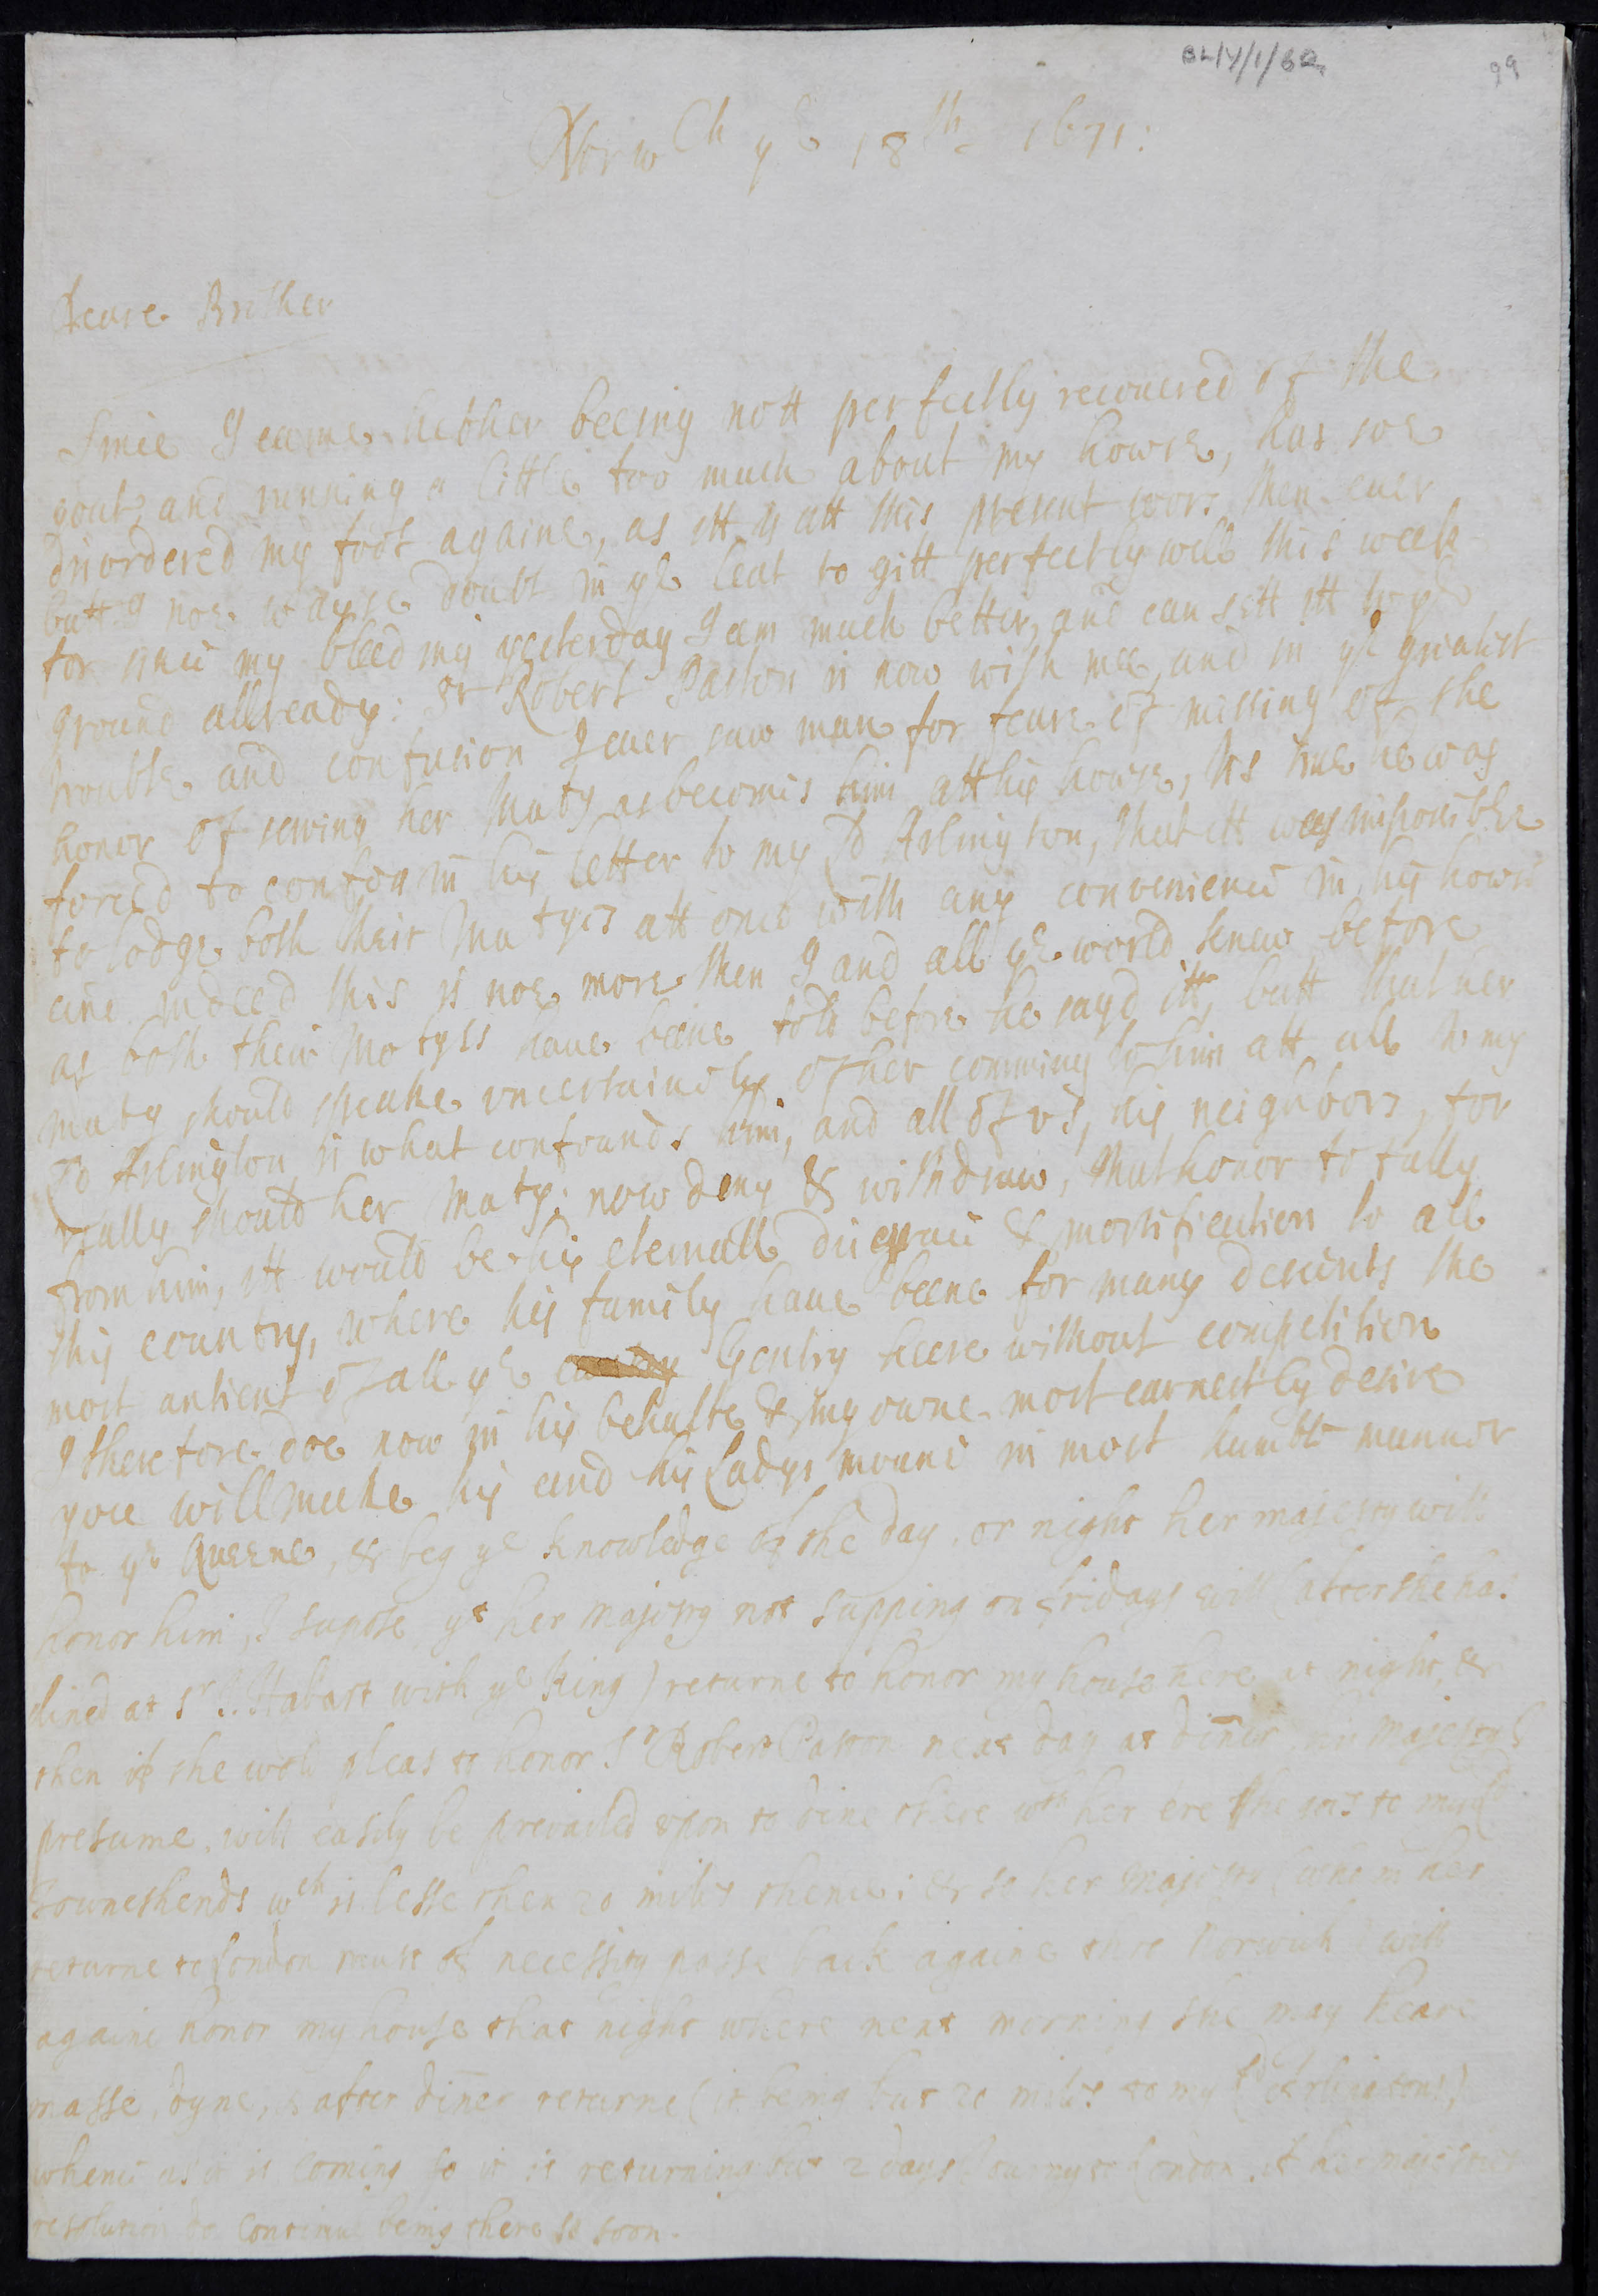 BL/Y/1/62
99
Norwch ye 18th 1671:
Deare Brother
Since I came hether beeing nott perfectly recouered of the
gout, and running a little too much about my howse, has soe
disordered my foot againe, as itt is att this present wors then euer
butt I noe wayse doubt in ye leat to gitt perfectly well this week
for since my bleeding yesterday I am much better, and can sett itt to ye
ground allready: Sr Robert Paston is now with mee, and in ye greatest
trouble and confusion I euer saw man for feare of missing of the
honor of seruing her Maty as becomes him att his howse, tis true he was
forced to confess in his letter to my Ld Arlington, that itt was imposible
to lodge both their Matyes att once with any convenience in his howse
and indeed this is noe more then I and all ye world knew before
as both their Matyes haue beene told before he sayd itt, butt that her
Maty should speake uncertainely of her comming to him att all to my
Ld Arlington is what confounds him, and all of us, his neighbors, for
really should her Maty: now deny & withdraw, that honor totally
from him, itt would be his eternall disgrace & mortification to all
this country, where his family haue beene for many descents the
most antient of all ye Gentry heere without competition
I therefore doe now in his behalfe & my owne most earnestly desire
you will make his and his Ladys moane in most humble mannor
to ye Queene, & beg ye knowledge of the day or night her majesty will
honor him, I supose yt her majesty not supping on fridays will (after she has
dined at Sr J. Habart with ye King) returne to honor my house here at night, &
then if she wold pleas to honor Sr Robert Paston next day at dinner his Majesty I
presume will easily be prevailed upon to dine there wth her ere he gos to my Ld
Towneshends wch is lesse then 20 miles thence: & so her Majesty (who in her
returne to London must of necessity passe back againe thro Norwich) will
againe honor my house that night where next morning she may heare
masse, dyne, & after dinner returne (it being but 20 miles to my Ld Arlingtons)
whence as it is coming so it is returning but 2 days Journy to London, if her majestyes
resolution do continue being there so soon.